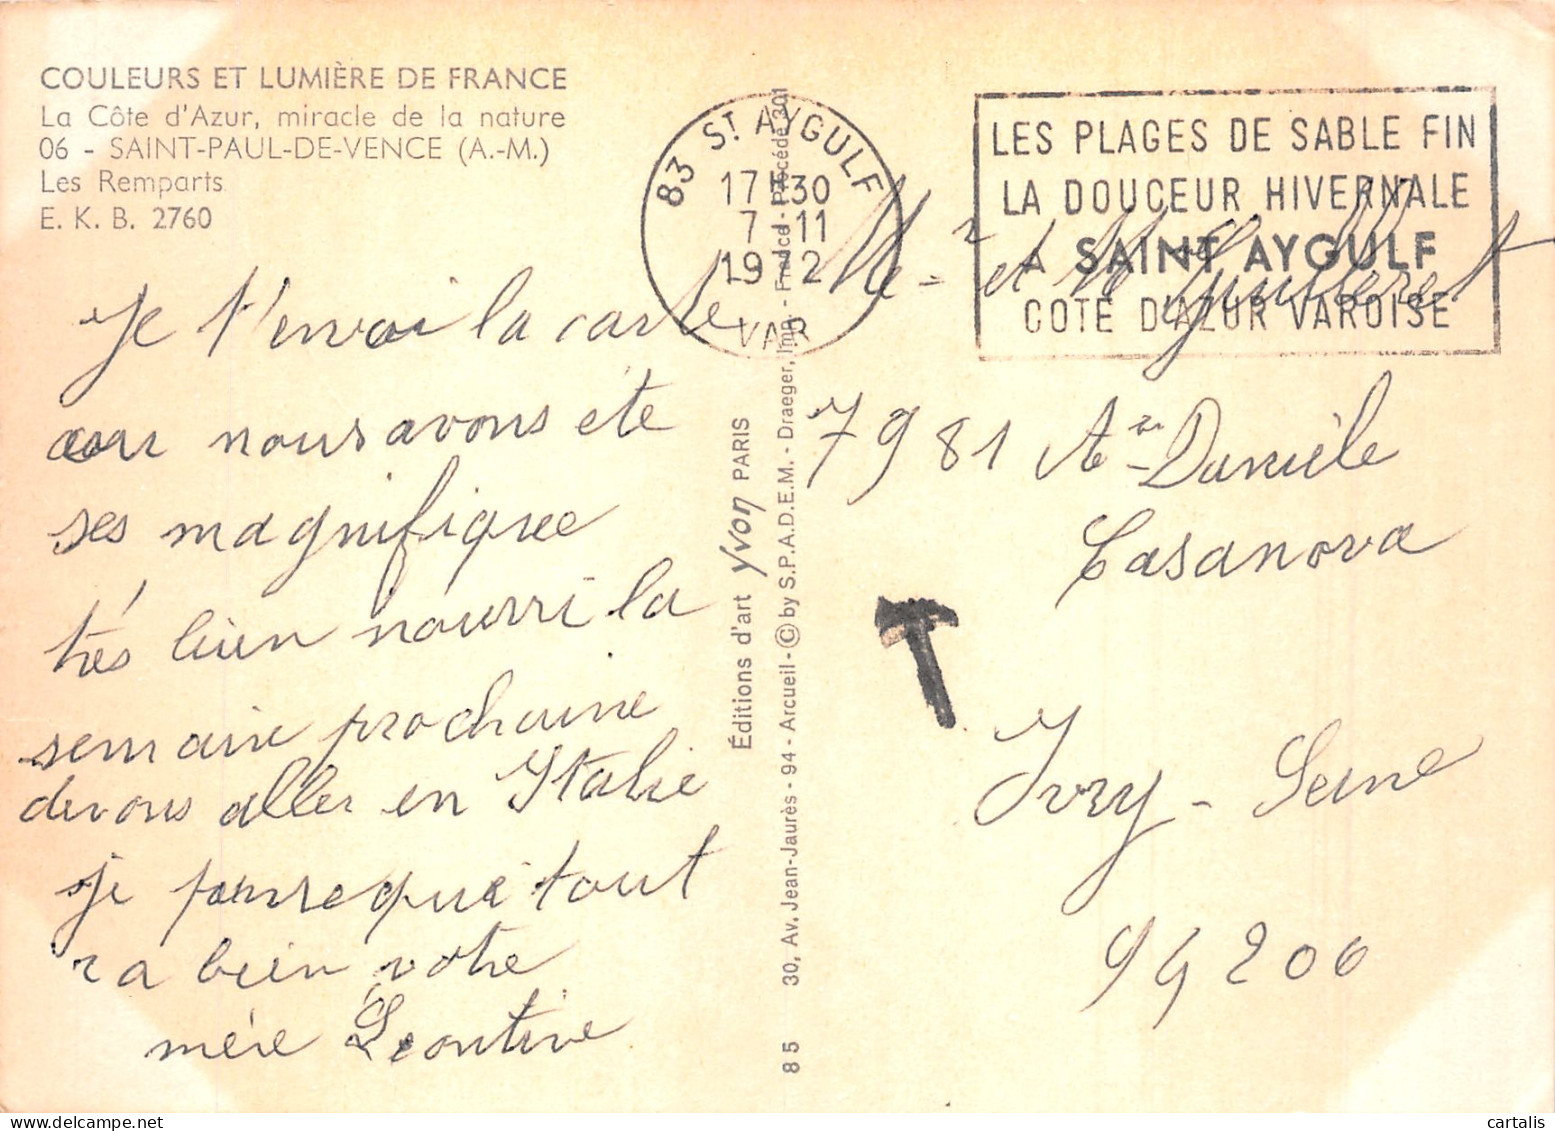 COULEURS ET LUMIÈRE DE FRANCE
La Côte d'Azur, miracle de la nature
06 - SAINT-PAUL-DE-VENCE (A.-M.)
Les Remparts
E. K. B. 2760
83 ST AYGULF
17H30
7-11
1972
VAR
LES PLAGES DE SABLE FIN
LA DOUCEUR HIVERNALE
A SAINT AYGULF
COTE D'AZUR VAROISE
Je t'envoi la carte
nous avons ete
ses magnifique
très bien nourri la
semaine prochaine
devons aller en Italie
je panse que tout
va bien votre
mère Leontine
Éditions d'art yvon PARIS
30, Av. Jean-Jaurès - 94 - Arcueil - © by S.P.A.D.E.M. - Draeger, Imp. - France - Procédé 301
85
et
Danièle
Casanova
Ivry - Seine
94200
T
cartalis